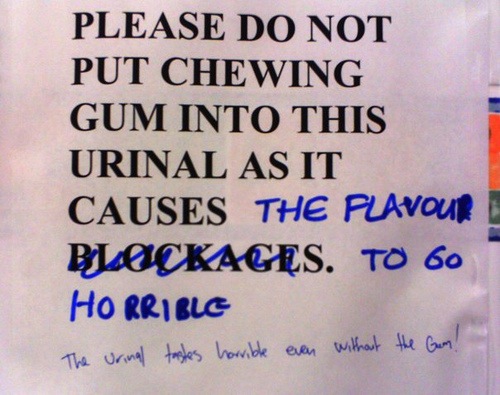 PLEASE DO NOT
PUT CHEWING
GUM INTO THIS
URINAL AS IT
CAUSES THE FLAVOUR
BLOCKAGES. TO GO
HORRIBLE
The urinal tastes horrible even without the Gum!